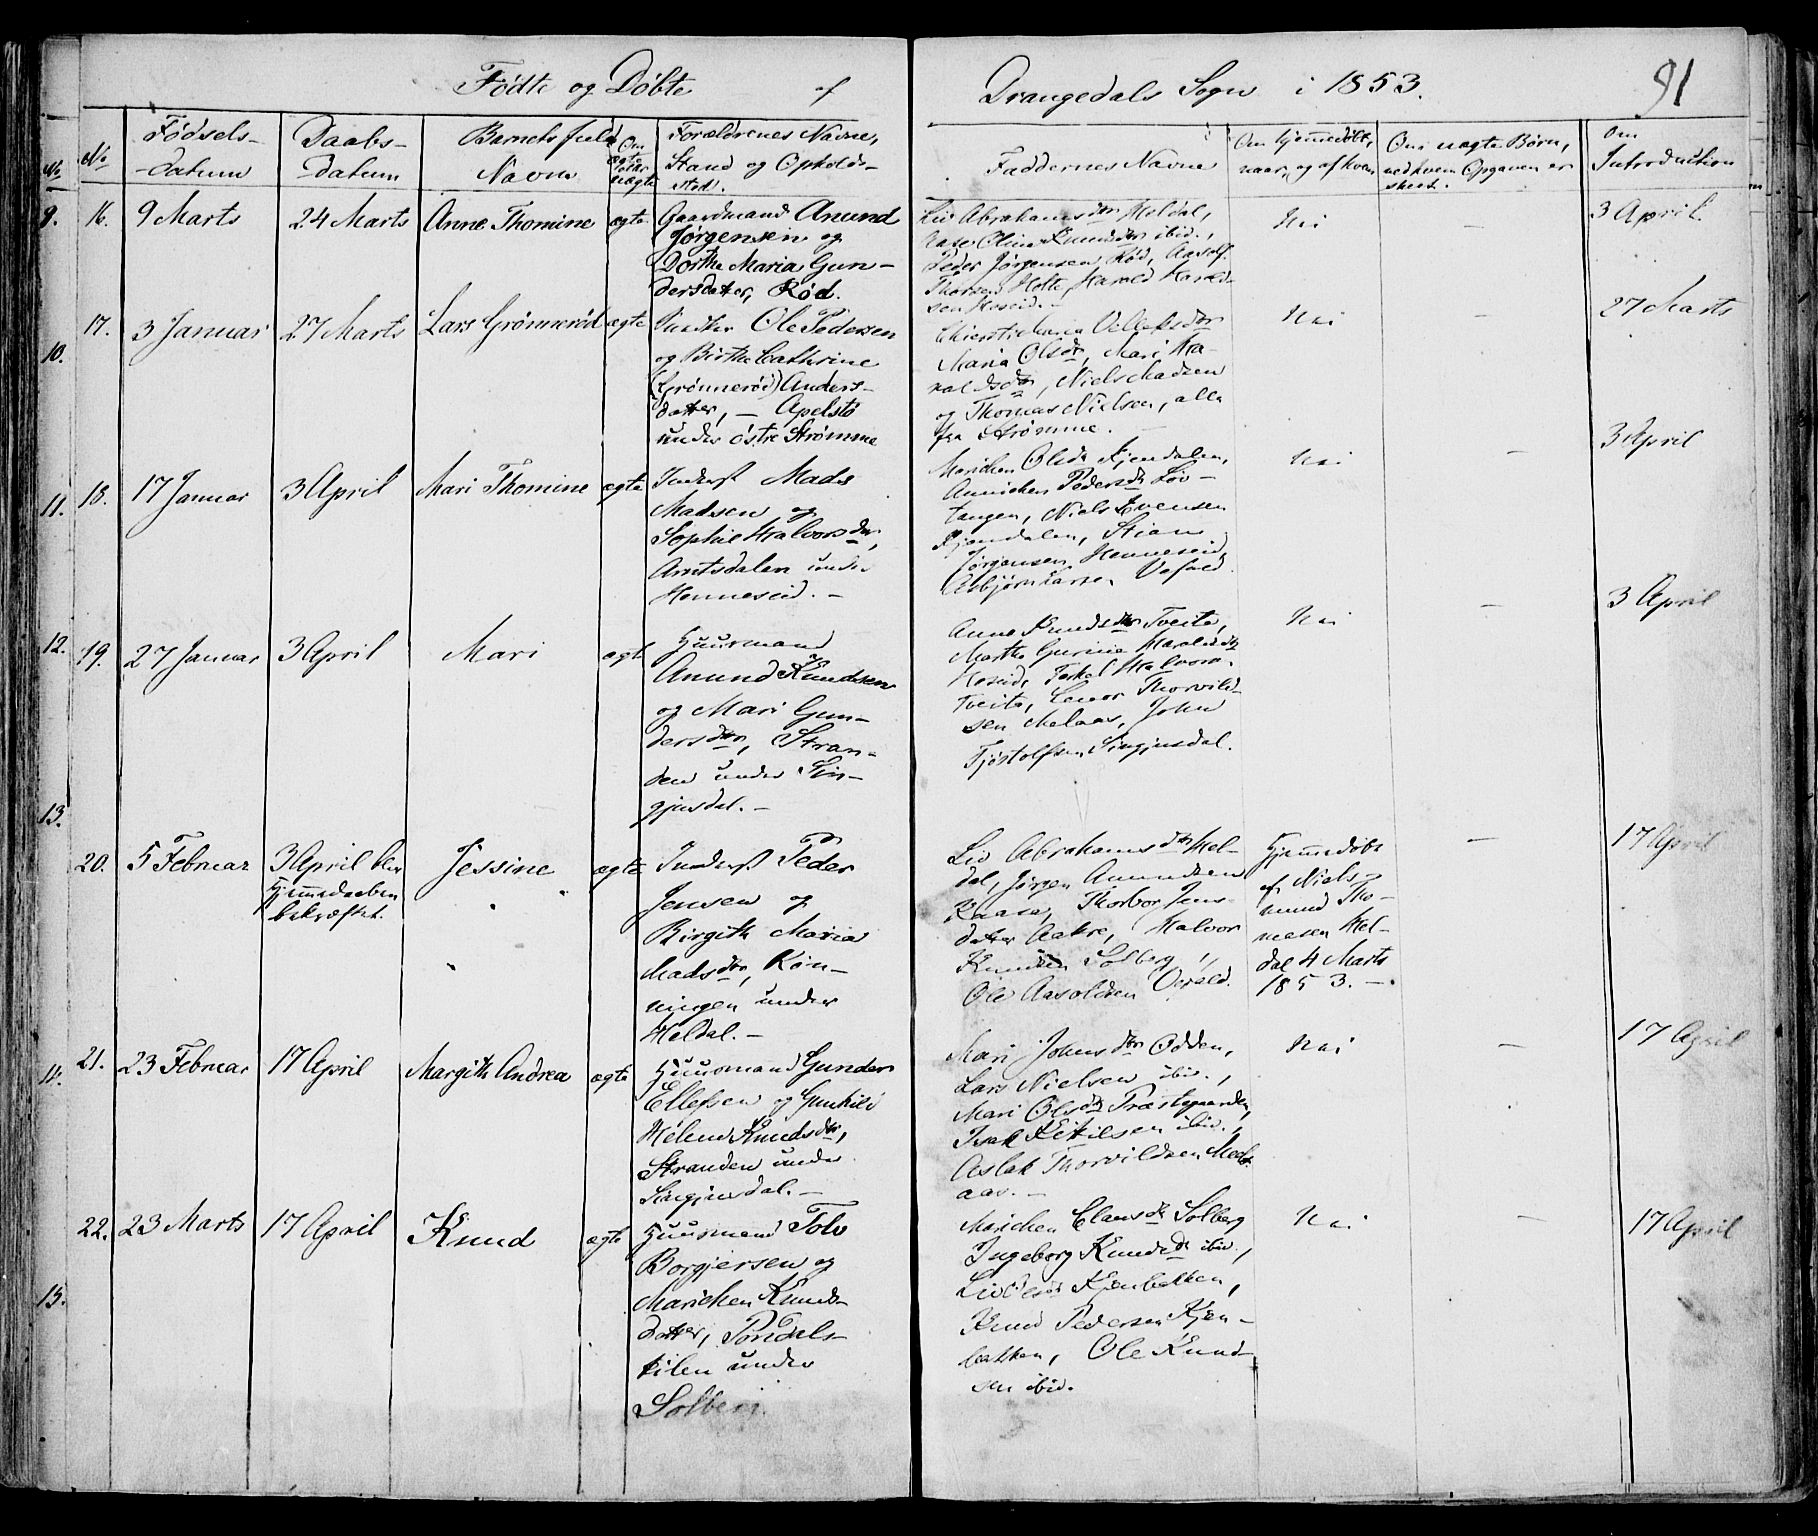 Fødte og Døbte af Drangedals Sogn i 1853. 91
No
No
Fødsels-
datum
Daabs-
datum
Barnets fulde
Navn
Om
ægte
eller
uægte
Forældrenes Navne,
Stand og Opholds-
sted.
Faddernes Navne
Om hjemmedøbt,
naar, og af hvem
Om uægte Børn,
ved hvem Opgaven er
skeet.
Om
Introduction
9. 16. 9 Marts 24 Marts Anne Thomine ægte
Gaardmand Anund
Jørgensen og
Dorthe Maria Gun-
dersdatter, Rød.
Liv Abrahamsdtr Heldal,
Aase Oline Knudsdtr ibid.,
Peder Jørgensen Rød, Aasolf
Thorsen Holte, Harold Harald-
sen Hoseid. -
Nei - 3 April.
10. 17. 3 Januar 27 Marts Lars Grönnerød ægte
Ole Pedersen
og Birthe Cathrine
(Grönnerød) Anders-
datter, - Apelstö
under östre Strømme
Chierstie Maria Vellefsdtr
Maria Olsdr, Mari Ha-
raldsdtr, Niels Madsen
og Thomas Nielsen, alle
fra Strømme. -
Nei 27 Marts
11. 18. 17 Januar 3 April Mari Thomine ægte
Inderst Mads
Madsen og
Sophie Halvorsdtr,
Arntsdalen under
Henneseid. -
Marichen Olsdr Kjendalen,
Annichen Pedersdr Löv-
tangen, Niels Evensen
Kjendalen, Stian
Jørgensen Henneseid,
Asbjørn Larsen Vefald
Nei - 3 April
12. 19. 27 Januar 3 April Mari ægte
Huusmand
Anund Knudsen
og Mari Gun-
dersdtr, Stran-
den under Sin-
gjusdal. -
Anne Knudsdtr Tveite,
Marthe Gurine Haraldsdtr
Hoseid, Terkel Halvors.
Tveite, Thorvild-
sen Melaas, John
Tjöstolfsen Singjusdal.
Nei - 3 April
13.
20. 5 Februar 3 April blev
Hjemmedaaben
bekræftet.
Jessine ægte
Inderst Peder
Jensen og
Birgith Maria
Madsdtr, Røn-
ningen under
Heldal. -
Liv Abrahamsdtr Hel-
dal, Jørgen Anundsen
Kaasa, Thorbor Jens-
datter Aakre, Halvor
Knudsen Solberg,
Ole Aasoldsen Ovrald.
Hjemmedøbt
af Niels
mund Tho-
mesen Hel-
dal 4 Marts
1853. -
- 17 April
14. 21. 23 Februar 17 April Margith Andrea ægte
Huusmand Gunder
Ellefsen og Gunhild
Helene Knudsdtr,
Stranden under
Singjusdal. -
Mari Johnsdtr Odden,
Lars Nielsen ibid.,
Mari Olsdtr Præstegaarden,
Isak Ketilsen ibid.,
Aslak Thorvildsen Mel-
aas. -
Nei - 17 April
22. 23 Marts 17 April Knud ægte
15.
Huusmand Tolv
Borgjersen og
Marichen Knuds-
datter, Pondels-
kilen under
Solberg.
Marichen Clausdr Solberg
Ingeborg Knudsdr ibid.,
Liv Olsdr Kjenbakken,
Knud Pedersen Kjen-
bakken, Ole Knud-
sen ibid.
Nei - 17 April